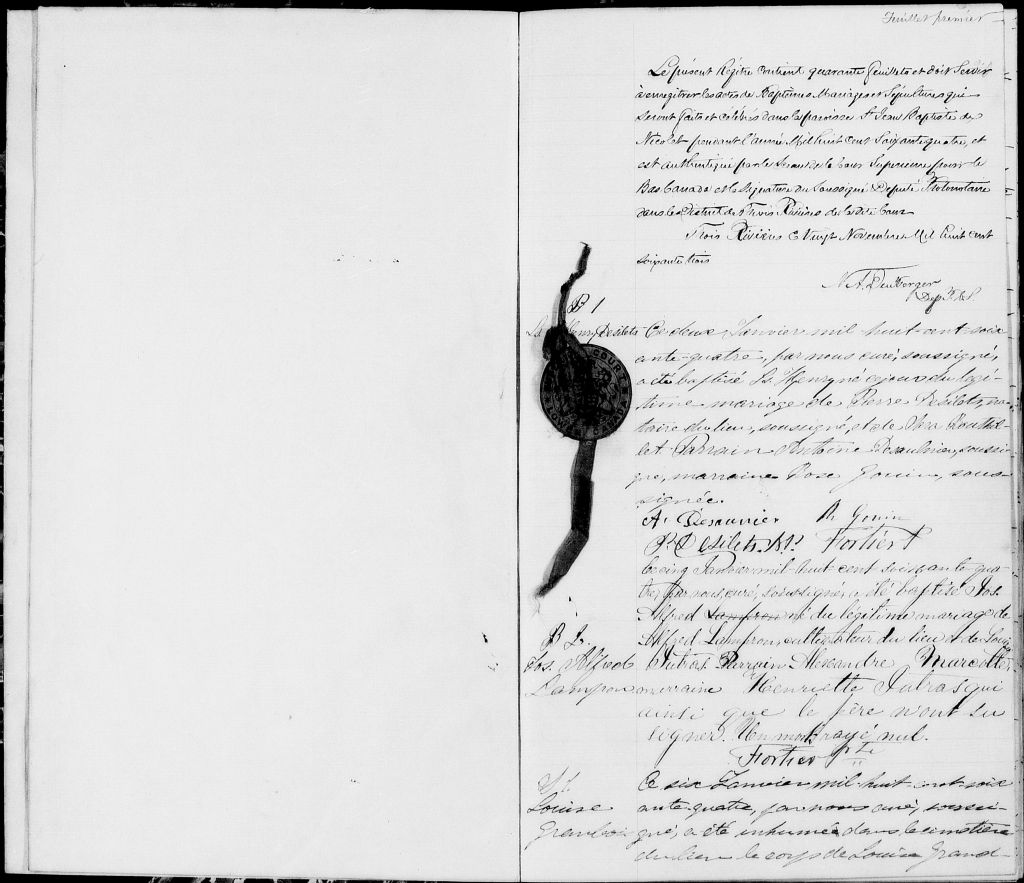 Feuillet premier
Le présent Régître contient quarante feuillets et doit servir
à enregîtrer les actes de Baptêmes Mariages et Sépultures qui
seront faits et célébrés dans la paroisse St Jean Baptiste de
Nicolet pendant l'année Mil huit cent Soixante quatre, et
est authentiqué par le Sceau de la Cour Supérieure pour le
Bas Canada et la Signature du Soussigné Député Protonotaire
dans le District des Trois Rivières de la dite Cour
Trois Rivières Ce Vingt Novembre Mil huit cent
soixante trois
Dep P.C.S.
B 1
Ls Henry Desilets
Ce deux Janvier mil huit cent soix
ante-quatre, par nous curé, soussigné,
a été baptisé Ls. Henry né ce jour du légi-
time mariage de Pierre Desilets, no-
taire du lieu, soussigné, et de
Parrain Antoine Desaulnier, soussi-
gné, marraine Rose Gouin, sous-
signée.
A. Desaunier
R Gouin
P. Desilets. N.P.
Fortier
COURT
CANADA
B 2.
Jos. Alfred
Lampron
Le cinq Janvier mil huit cent soixante-qua-
tre, par nous curé, soussigné, a été baptisé Jos.
Alfred Lampron né du légitime mariage de
Alfred Lampron, cultivateur du lieu et de
Jutras. Parrain Alexandre Marcotte,
marraine Henriette Jutras qui
ainsi que le père n'ont su
signer. Un mot rayé nul.
Fortier Ptr
S 1.
Louise
Grandbois
Ce six Janvier mil huit cent soix
ante-quatre, par nous curé, soussi-
gné, a été inhumée dans le cimetière
du lieu le corps de Louise Grand-